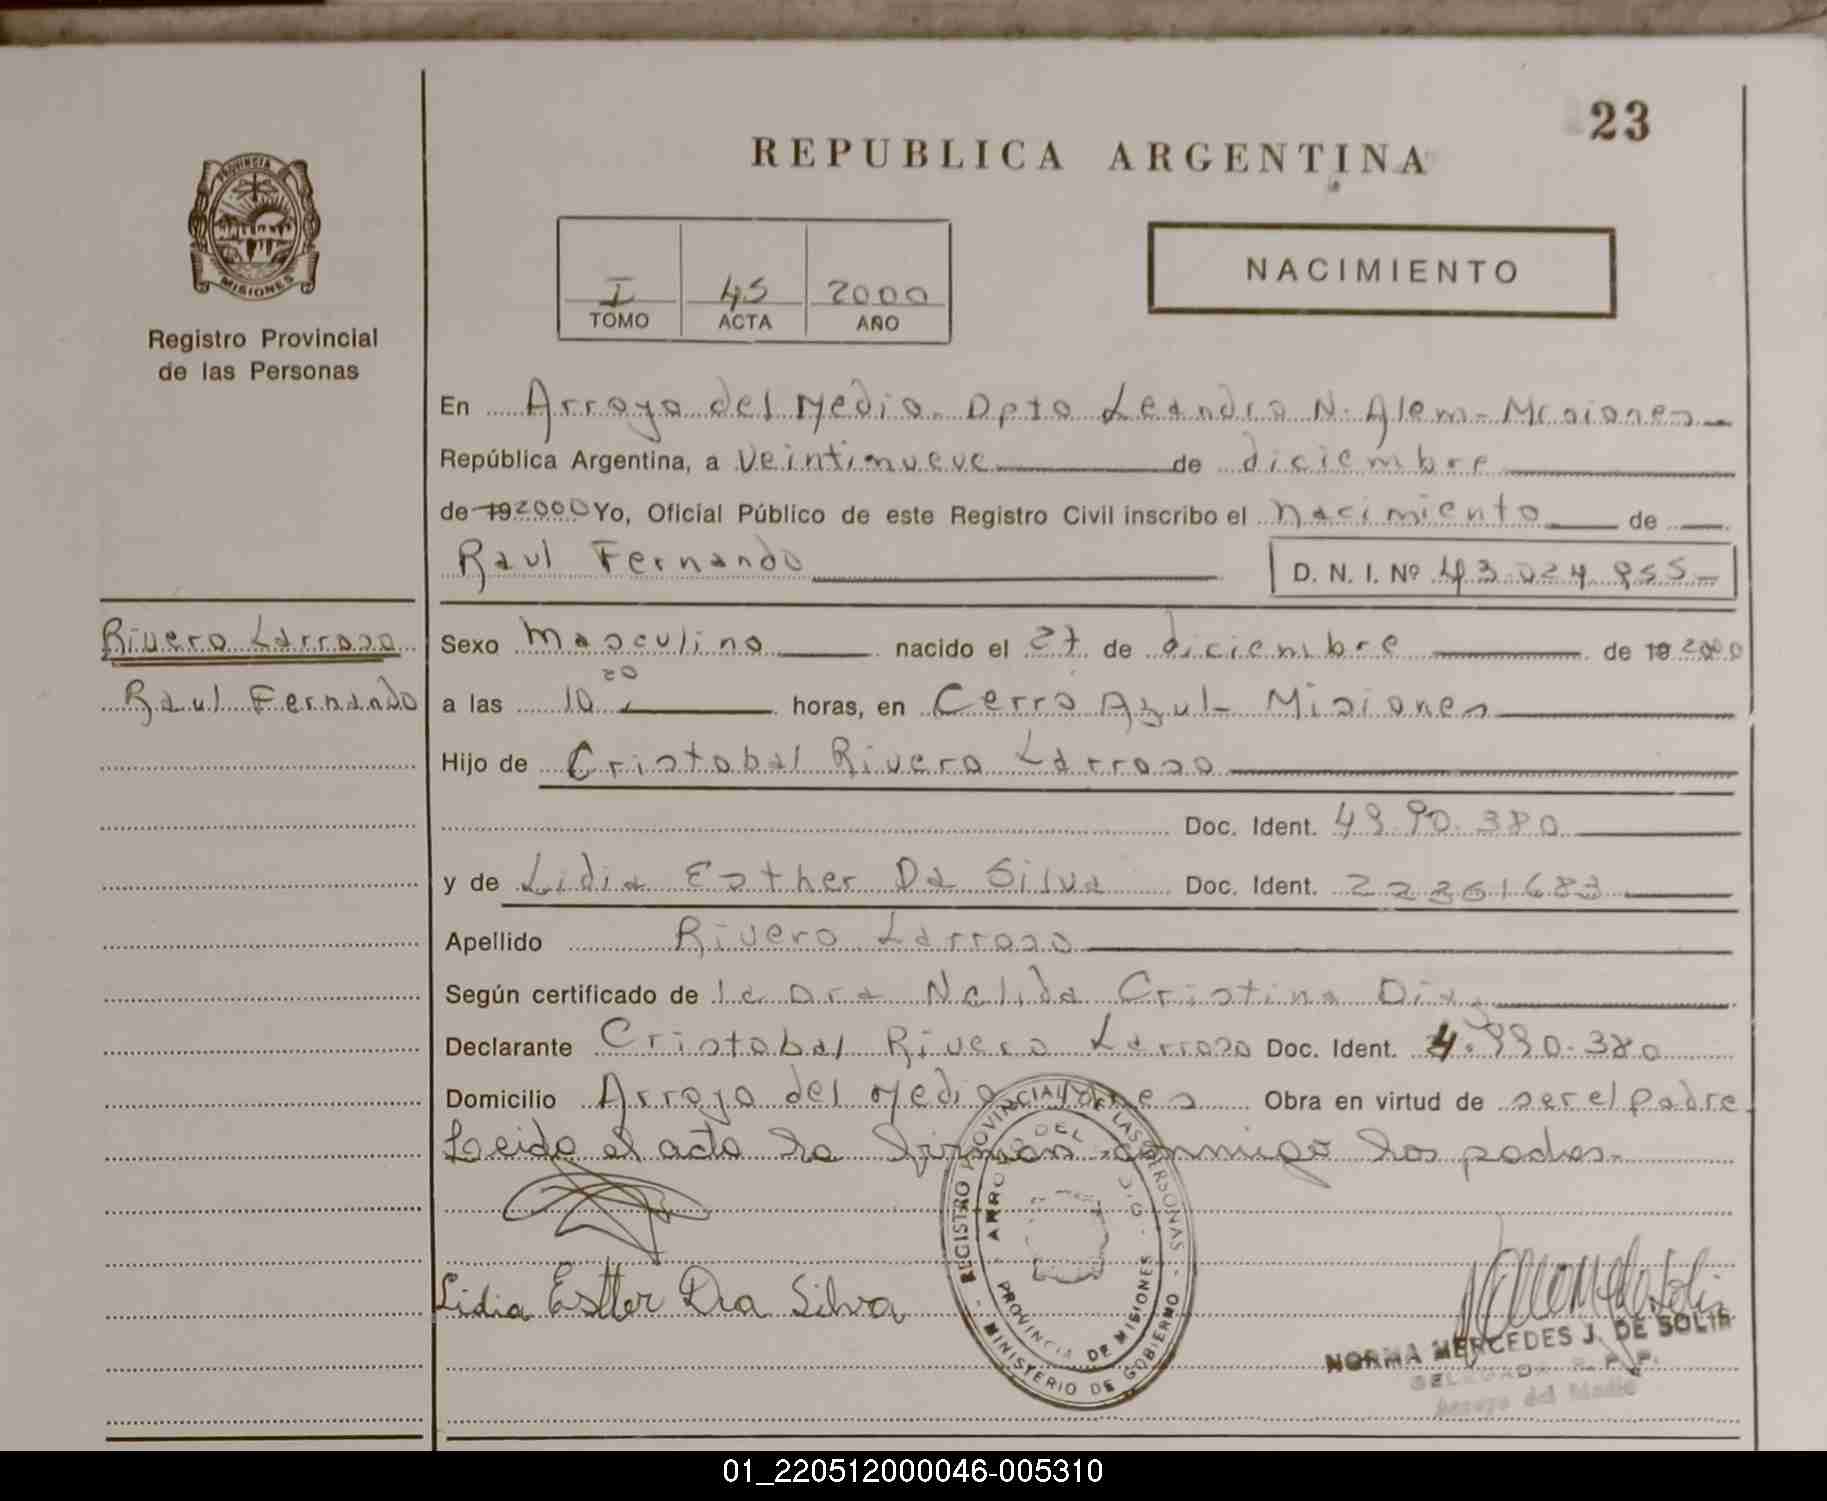 23
REPUBLICA ARGENTINA
PROVINCIA
MISIONES
Registro Provincial
de las Personas
I 45 2000
TOMO ACTA AÑO
NACIMIENTO
En Arroyo del Medio - Dpto Leandro N. Alem - Misiones
República Argentina, a Veintinueve de diciembre
de 19 2000 Yo, Oficial Público de este Registro Civil inscribo el nacimiento de
Raul Fernando D. N. I. Nº 43.024.955
Rivero Larroso
Raul Fernando
Sexo Masculino nacido el 27 de diciembre de 19 2000
a las 10 20 horas, en Cerro Azul - Misiones
Hijo de Cristobal Rivero Larroso
Doc. Ident. 49.90.380
y de Lidia Esther Da Silva Doc. Ident. 22261683
Apellido Rivero Larroso
Según certificado de la Dra Nelida Cristina Diaz
Declarante Cristobal Rivero Larroso Doc. Ident. 4.990.380
Domicilio Arroyo del Medio Obra en virtud de ser el padre
Leido el acta la firman conmigo los padres.
Lidia Esther Da Silva
REGISTRO PROVINCIAL DE LAS PERSONAS - MINISTERIO DE GOBIERNO -
ARROYO DEL
PROVINCIA DE MISIONES
NORMA MERCEDES J. DE SOLIS
DELEGADA R. P. P.
Arroyo del Medio
01_220512000046-005310